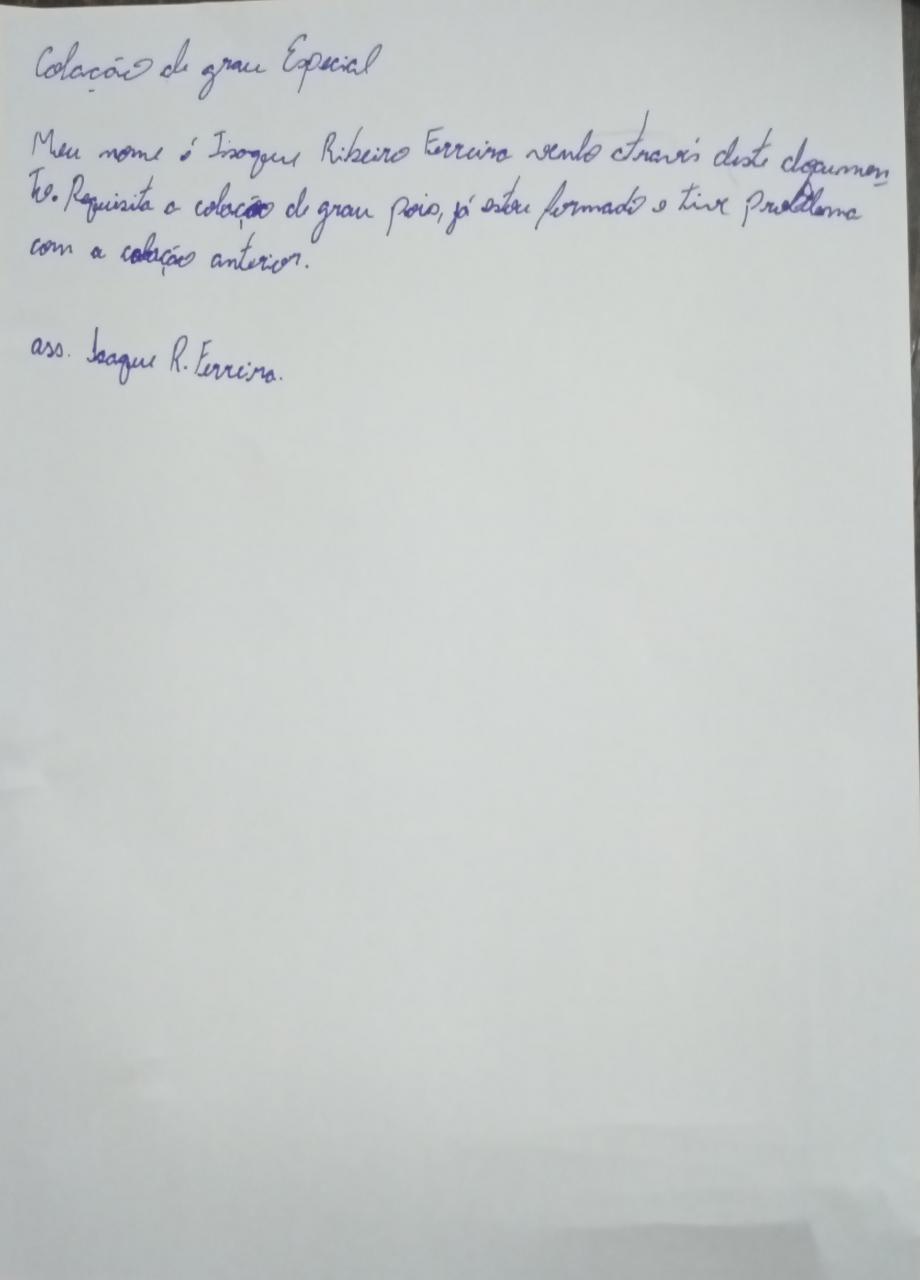 Colação de grau Especial
Meu nome é Isaque Ribeiro Ferreira venho através deste documen
to. Requisita a colação de grau pois, já estou formado e tive problema
com a colação anterior.
ass. Isaque R. Ferreira.